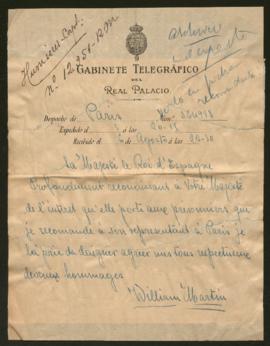 Humières-Capt.
Nº 12.951-R.M
archivar
GABINETE TELEGRÁFICO
DEL
REAL PALACIO
Despacho de Paris Núm.
Expedido el a las 20-15
Recibido el 6 Agosto a las 20-30
Sa Majesté le Roi d'Espagne
Profondément reconnaissant à Votre Majesté
de l'interet qu'elle porte aux prisonniers que
je recomande a son representant à Paris je
la prie de daigner agréer mes tous respectueux
hommages
William Martin